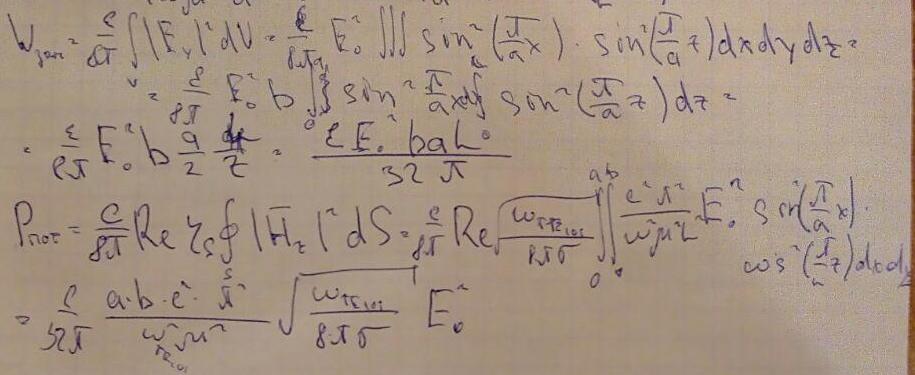 W_зап = ε/8π ∫_V |E_y|² dV = ε/8π E₀² ∭ sin²(π/a x) · sin²(π/a z) dx dy dz =
= ε/8π E₀² b ∫₀ sin² π/a x dx ∫ sin²(π/a z) dz =
= ε/8π E₀² b a/2 L/2 = ε E₀² b a L / 32π
P_пот = c/8π Re ζ_s ∮_S |H_τ|² dS = c/8π Re √(ω_TE₁₀₁ / 8πσ) ∫₀^a ∫₀^b c² π² / ω² μ² L² E₀² sin²(π/a x) ·
cos²(π/L z) dx dy
= c/32π · a·b·c²·π² / ω²_TE₁₀₁ μ² √(ω_TE₁₀₁ / 8πσ) E₀²